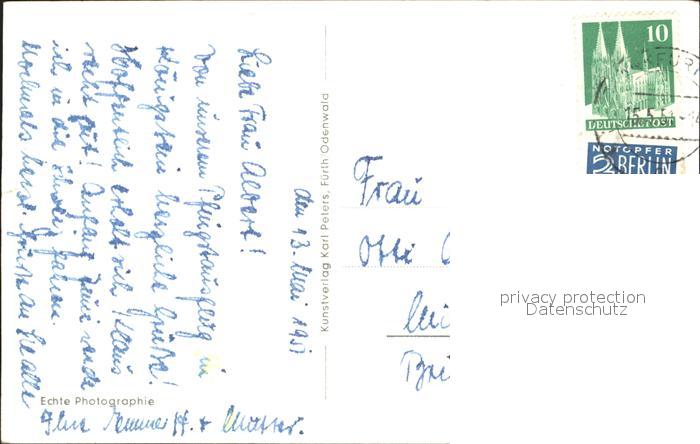 den 13. Mai 1951
Liebe Frau Albert!
Von unserem Pfingstausflug in
Königstein herzliche Grüße!
Hoffentlich erholt sich Klaus
recht gut! Anfang Juni werde
ich in die Schweiz fahren.
Nochmals herzl. Grüße an Sie alle
Ihre + Mutter.
Echte Photographie
Kunstverlag Karl Peters, Fürth Odenwald
10
DEUTSCHE POST
NOTOPFER
2 BERLIN
Frau
Otti
privacy protection
Datenschutz